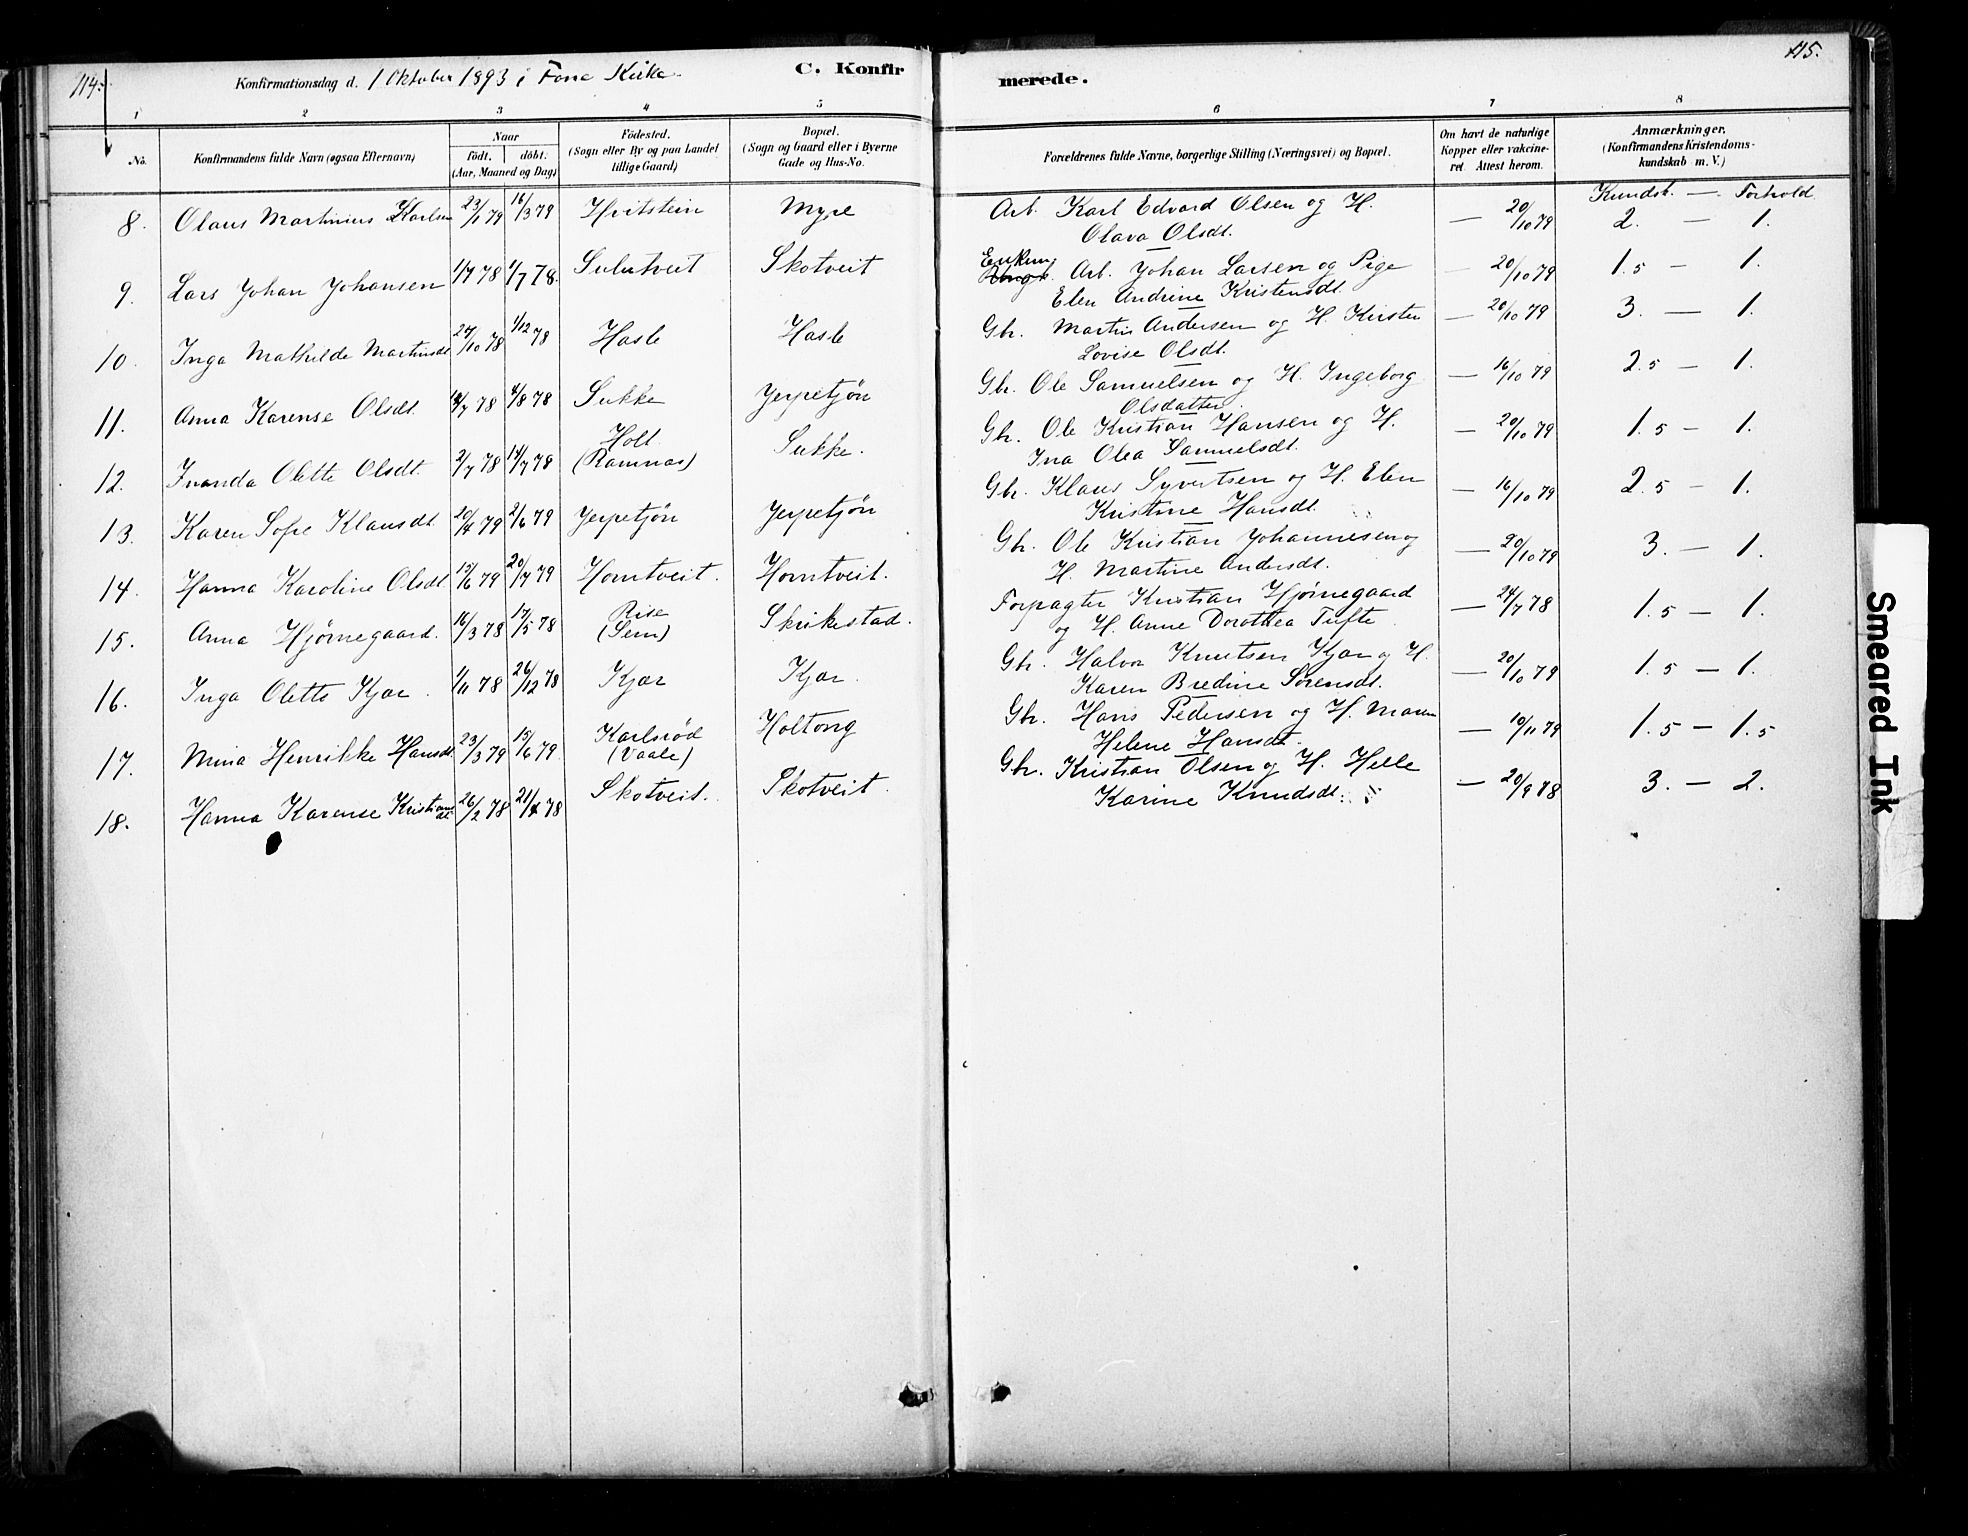 114.
Konfirmationsdag d. 1 Oktober 1893 i Fone Kirke.
C. Konfirmerede.
115.
1 2 3 4 5 6 7 8
No.
Konfirmandens fulde Navn (ogsaa Efternavn)
Naar
födt. döbt.
(Aar, Maaned og Dag)
Födested.
(Sogn eller By og paa Landet
tillige Gaard)
Bopæl.
(Sogn og Gaard eller i Byerne
Gade og Hus-No.
Forældrenes fulde Navne, borgerlige Stilling (Næringsvei) og Bopæl.
Om havt de naturlige
Kopper eller vakcine-
ret. Attest herom.
Anmærkninger.
(Konfirmandens Kristendoms-
kundskab m. V.)
Kundsk. — Forhold
8. Olaus Martinius Karlsen 23/1 79 16/3 79 Hvitstein Myre Arb. Karl Edvard Olsen og H. — 20/10 79 2. — 1.
Olava Olsdt.
9. Lars Johan Johansen 1/7 78 1/7 78. Sulutveit Skotveit Enkem. Arb. Johan Larsen og Pige — 20/10 79 1.5 — 1.
Elen Andrine Kristensdt.
10. Inga Mathilde Martinsdt 27/10 78 1/12 78 Hasle Hasle Gbr. Martin Andersen og H. Kirsten — 20/10 79 3. — 1.
Lovise Olsdt.
11. Anna Karense Olsdt. 4/8 78 Sukke Jerpetjøn Gbr. Ole Samuelsen og H. Ingeborg — 16/10 79 2.5 — 1.
Olsdatter.
12. Inanda Olette Olsdt. 2/7 78 14/7 78 Holt (Ramnæs) Sukke. Gbr. Ole Kristian Hansen og H. — 20/10 79 1.5 — 1.
Ina Olea Samuelsdt.
13. Karen Sofie Klausdt. 20/4 79 2/6 79 Jerpetjøn Jerpetjøn Gbr. Klaus Syvertsen og H. Elen — 16/10 79 2.5 — 1.
Kristine Hansdt.
14. Hanna Karoline Olsdt. 15/6 79 20/7 79 Horntveit. Horntveit. Gbr. Ole Kristian Johannesen og — 20/10 79 3. — 1.
H. Martine Andersdt.
15. Anna Hjørnegaard. 16/3 78 17/5 78 Rise (Sem) Skrikestad. Forpagter Kristian Hjørnegaard — 24/7 78 1.5 — 1.
og H. Anne Dorothea Tufte
16. Inga Olette Kjær. 1/11 78 26/12 78 Kjær Kjær. Gbr. Halvor Knutsen Kjær og H. — 20/10 79 1.5 — 1.
Karen Bredine Sørensdt.
17. Mina Henrikke Hansdt. 23/3 79 15/6 79 Karlsrød (Vaale) Holtong Gbr. Hans Pedersen og H. Maren — 10/11 79 1.5 — 1.5
Helene Hansdt.
18. Hanna Karense Kristiansdt. 26/2 78 21/4 78 Skotveit. Skotveit. Gbr. Kristian Olsen og H. Helle — 20/9 78 3. — 2.
Karine Knudsdt.
Smeared Ink